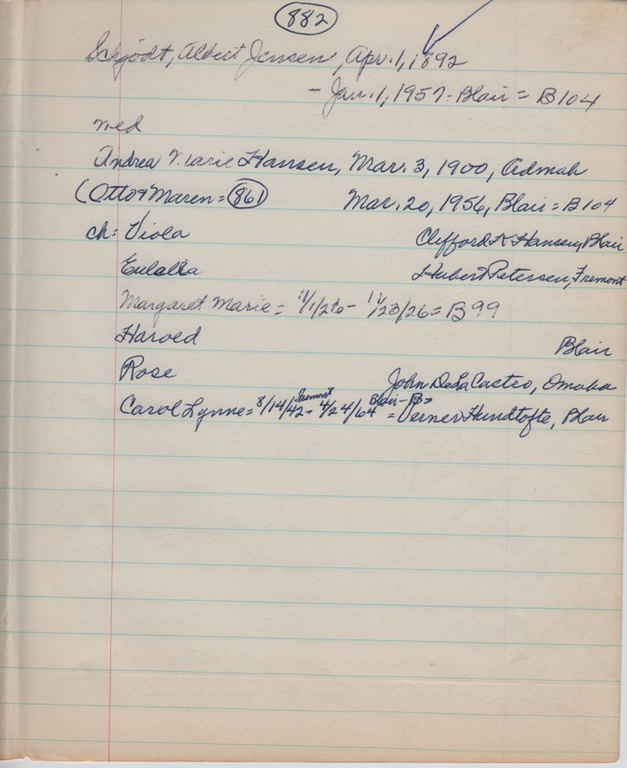 882
Schjödt, Albert Jensen, Apr. 1, 1892
- Jan. 1, 1957 - Blair = B104
med
Andrea Marie Hansen, Mar. 3, 1900, Admah
(Otto & Maren = 861) Mar. 20, 1956, Blair = B104
ch: Viola Clifford K Hansen, Blair
Eulalla Hubert Petersen, Fremont
Margaret Marie = 11/1/26 - 11/23/26 = B99
Harold Blair
Rose John DeLaCastro, Omaha
Carol Lynne = 8/14/42 Fremont - 4/24/64 Blair = Verner Hundtofte, Blair